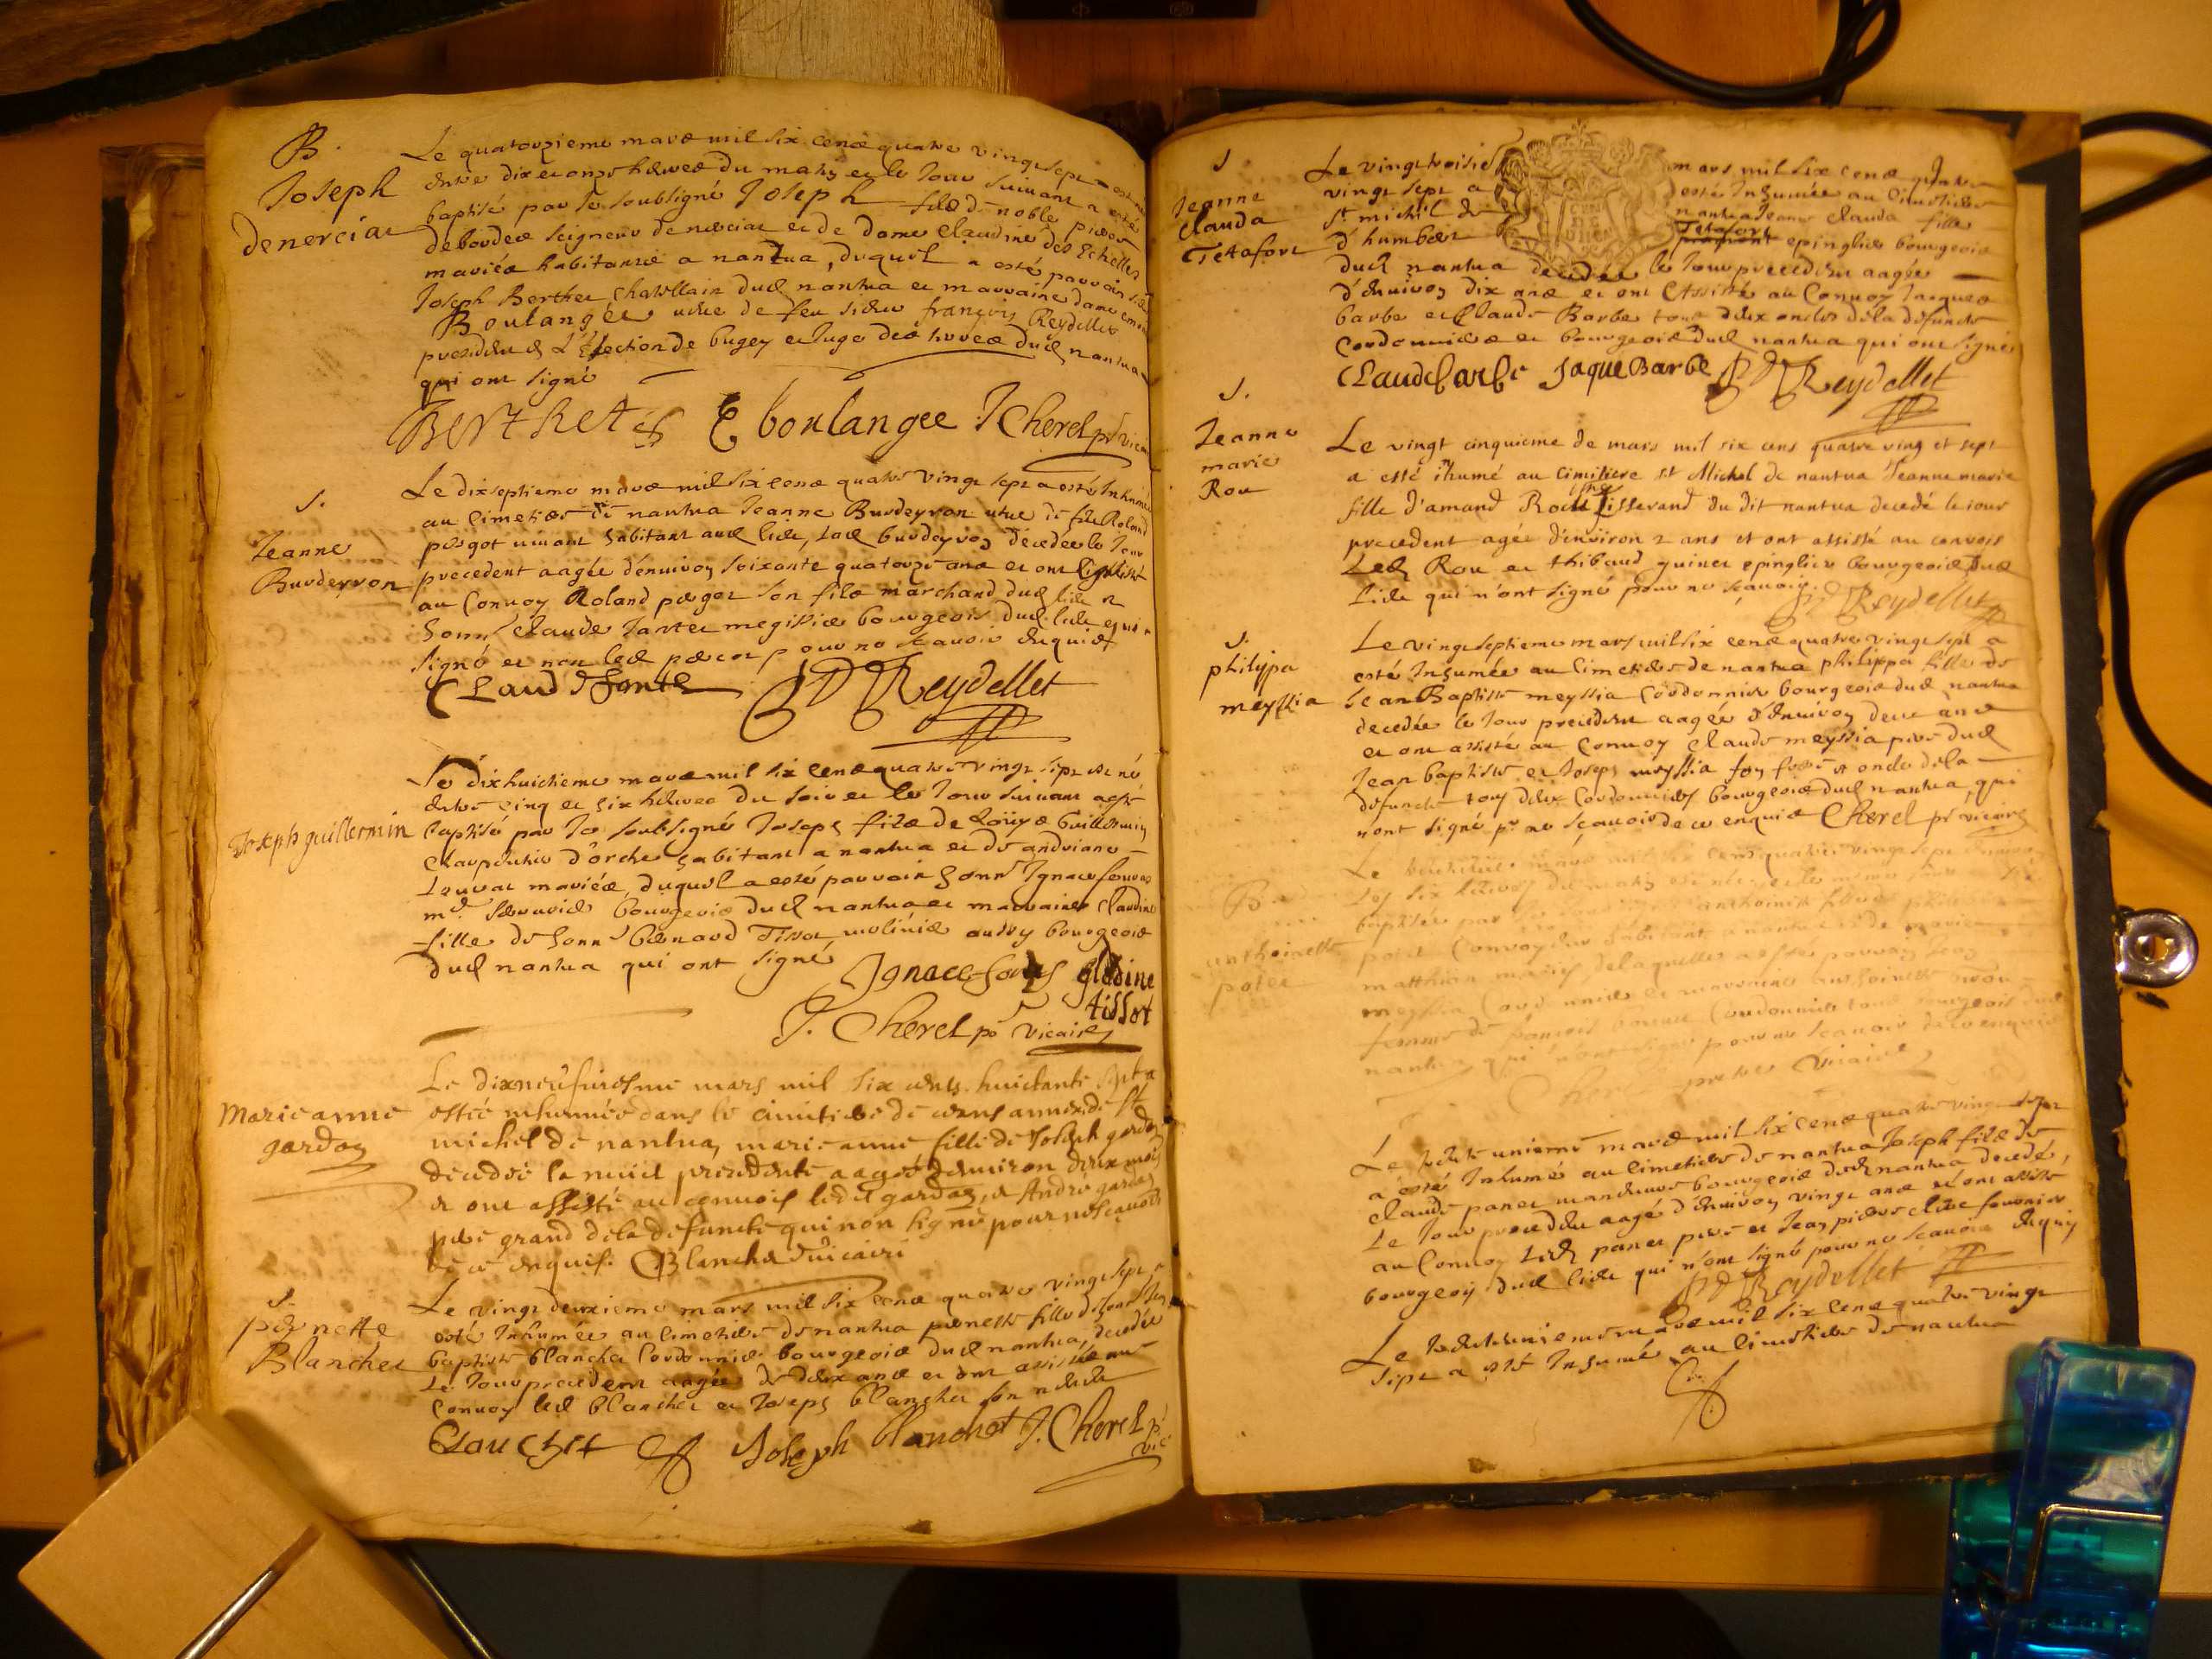 B.
Joseph
denerciat
Le quatorzieme mars mil six cens quatre vingt sept est né
entre dix et onze heures du matin et le jour suivant a esté
baptisé par le soubsigné Joseph fils de noble pierre
debordes seigneur denerciat et de dame claudine des Echelles
mariés habitants a nantua, duquel a esté parrain sieur
Joseph Berthet chatellain dud nantua et marraine dame
Boulangee vefve de feu sieur françois Reydellet
president en L'Election de bugey et juge des dud nantua
qui ont signé
BERTHET E boulangee J Cherel pr vicaire
S.
Jeanne
Burdeyron
Le dixseptieme mars mil six cens quatre vingt sept a esté Inhumée
au cimetiere de nantua Jeanne Burdeyron vefve de feu Roland
pergot vivant habitant aud lieu, lad burdeyron decedée le jour
precedent aagée d'environ soixante quatorze ans et ont assisté
au Convoy Roland pergot son fils marchand dud lieu et
honn Claude megissier bourgeois dud lieu qui a
signé et non led pour ne scavoir enquis
Claud Reydellet
Joseph guillermin
Le dixhuictieme mars mil six cens quatre vingt sept est né
entre cinq et six heures du soir et le jour suivant a esté
baptisé par le soubsigné Joseph fils de Guillermin
charpentier d'orche habitant a nantua et de andriane
Louvat mariés, duquel a esté parrain honn Ignace
md bourgeois dud nantua et marraine claudine
fille de honn bernard Tissot molinier aussy bourgeois
dud nantua qui ont signé
Ignace glodine
tissot
J. Cherel pr vicaire
Marie anne
gardaz
Le dixneufviesme mars mil six cents huictante sept a
estée inhumée dans le cimitiere de annexe de St
michel de nantua, marie anne fille de Joseph gardaz
decedée la nuict precedente aagée d'environ deux mois
et ont assisté au convois ledit gardaz, et André gardaz
pere grand de la defuncte qui non signé pour ne scavoir
de ce enquis. Blanchet vicaire
S.
pernette
Blanchet
Le vingt deuxieme mars mil six cens quatre vingt sept a
esté Inhumée au cimetiere de nantua pernette fille de Jean
baptiste blanchet Cordonnier bourgeois dud nantua, decedée
Le jour precedent aagée de deux ans et ont assisté au
Convoy led blanchet et Joseph blanchet son
Blanchet Joseph blanchet J. Cherel pr
vic
S
Jeanne
Clauda
Tetafort
Le vingt troisie mars mil six cens quatre
vingt sept a esté Inhumée au cimetiere
St michel de nantua Jeanne Clauda fille
d'humbert Tetafort epinglier bourgeois
dud nantua decedée le jour precedent aagée
d'environ dix ans et ont assisté au Convoy Jacques
barbe et Claude Barbe tous deux oncles de la defuncte
Cordonniers et bourgeois dud nantua qui ont signé
Claude barbe Jaque Barbe Reydellet
S.
Jeanne
marie
Rou
Le vingt cinquieme de mars mil six cens quatre ving et sept
a esté ihumé au Cimitiere st Michel de nantua Jeanne marie
fille d'amand tisserand du dit nantua decedé le jour
precedent agée d'environ 2 ans et ont assisté au convois
Led Rou et thibaud guinet epinglier bourgeois dud
Lieu qui n'ont signé pour ne scavoir. Reydellet
S.
philippa
meyssia
Le vingt septieme mars mil six cens quatre vingt sept a
esté Inhumée au cimetiere de nantua philippa fille de
Jean Baptiste meyssia Cordonnier bourgeois dud nantua
decedée le jour precedent aagée d'environ deux ans
et ont assisté au Convoy Claude meyssia pere dud
Jean baptiste et Joseph meyssia son frere et oncle de la
defuncte tous deux Cordonniers bourgeois dud nantua, qui
nont signé pr ne scavoir de ce enquis Cherel pr vicaire
B.
anthoinette
potet
Le mars mil six cens quatre vingt sept
Les six heures du matin
baptisée par anthoinette
potet habitant a nantua et de
matthieu de laquelle a esté parrain Jean
meyssia Cordonnier et marraine anthoinette
femme de Cordonnier tous bourgeois dud
nantua qui n'ont signé pour ne scavoir de ce enquis
Cherel pretre vicaire
Le trente unieme mars mil six cens quatre vingt sept
a esté Inhumé au cimetiere de nantua Joseph fils de
claude panet bourgeois dud nantua decedé,
Le jour precedent aagé d'environ vingt ans et ont assisté
au Convoy Led panet pere et Jean pierre
bourgeois dud lieu qui n'ont signé pour ne scavoir enquis
Reydellet
Le trente unieme mars mil six cens quatre vingt
sept a esté Inhumé au cimetiere de nantua